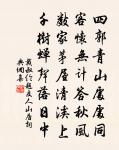 四郭青山處處同
客懷無計答秋風
數家茅屋清溪上
千樹蟬聲落日中
戴叔倫題友人山居詞
典網集